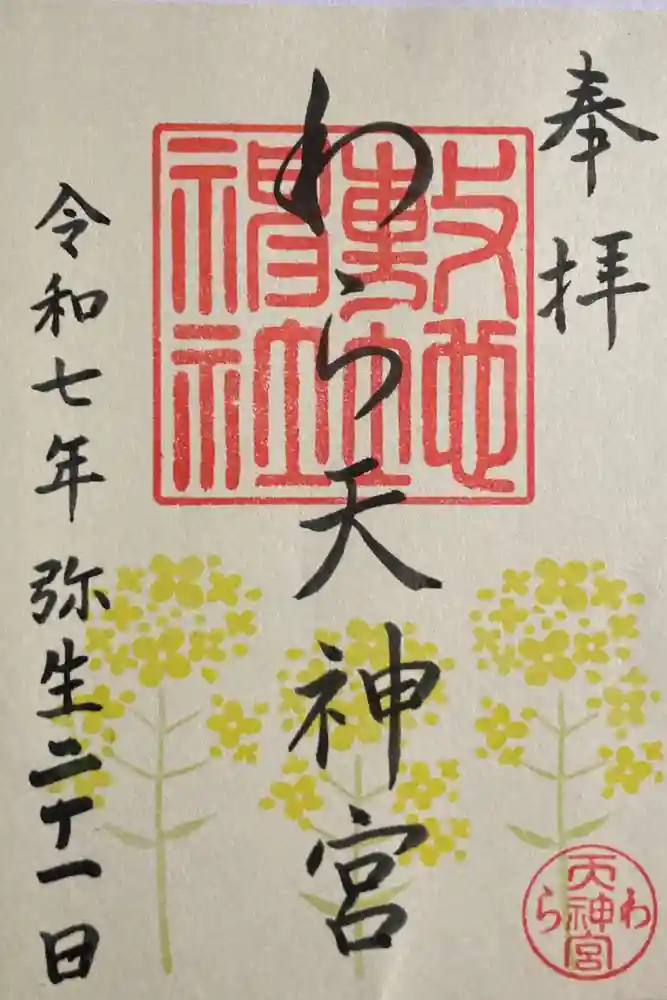 奉拝
わら天神宮
敷地神社
令和七年弥生二十一日
わら天神宮